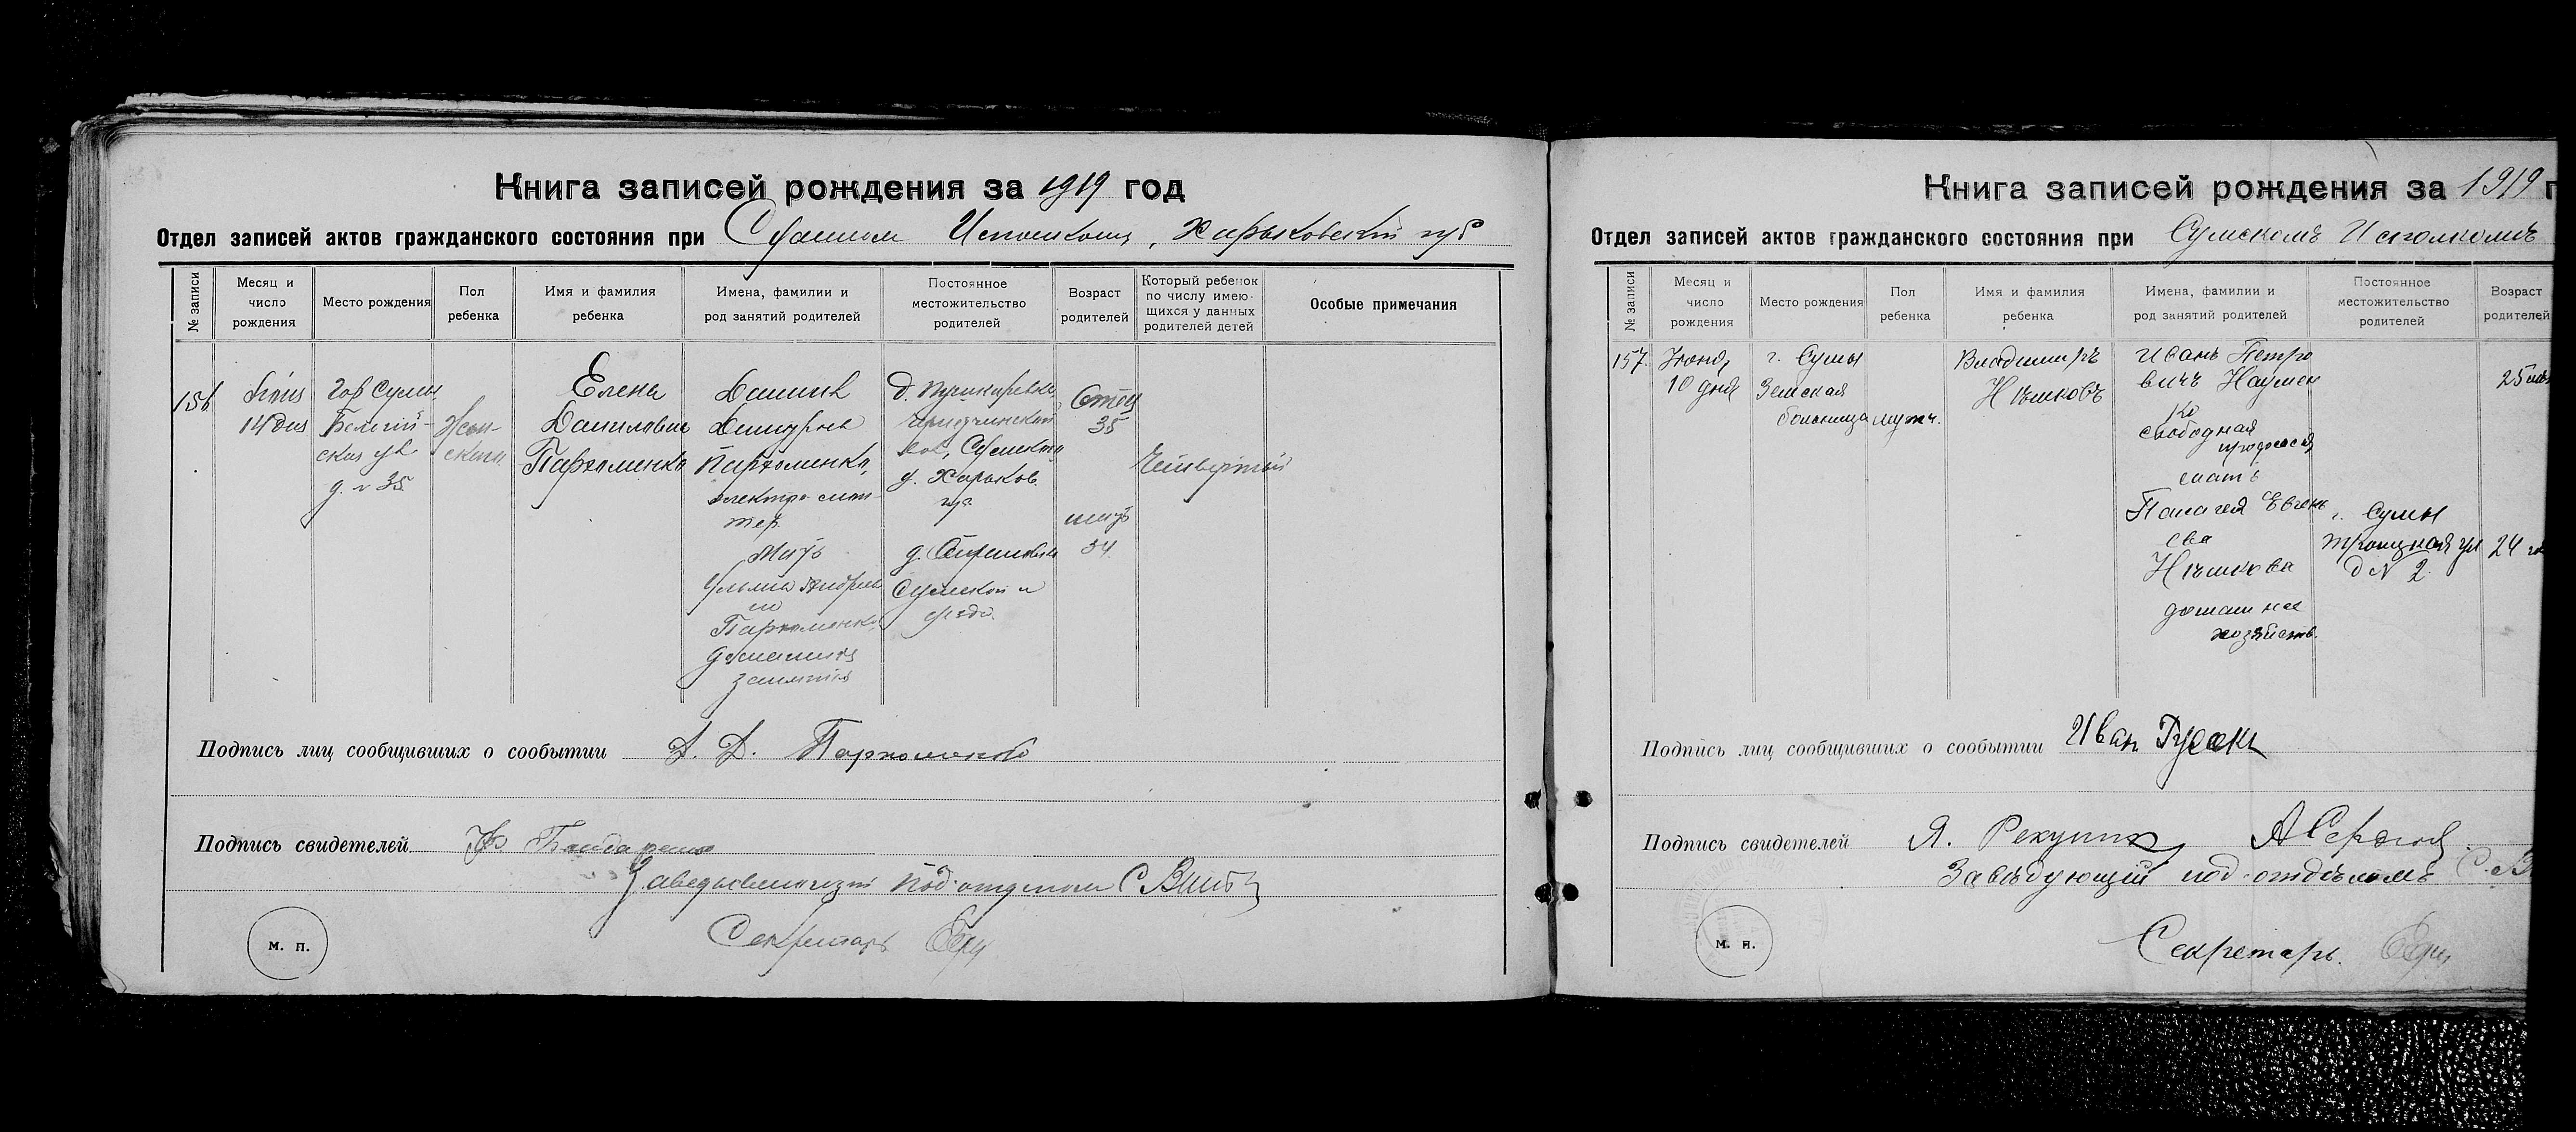 Книга записей рождения за 1919 год
Отдел записей актов гражданского состояния при Харьковской губ
№ записи
Месяц и число рождения
Место рождения
Пол ребенка
Имя и фамилия ребенка
Имена, фамилии и род занятий родителей
Постоянное местожительство родителей
Возраст родителей
Который ребенок по числу имеющихся у данных родителей детей
Особые примечания
156
14 дня
гор Сумы
д. № 35
Жен-
Елена
Даниловна
Пархоменко
Даниил
Пархоменко,
электро-мон-
тер.
Мать
Пархоменко
домашния
занятия
Сумского
у. Харьков.
губ.
Сумского
уезда.
Отец
35
мать
34
Четвертый
Подпись лиц сообщивших о сообытии Д. Д. Пархоменко
Подпись свидетелей
под-отделом С
Секретарь
М. П.
Книга записей рождения за 1919 г
Отдел записей актов гражданского состояния при Сумскомъ Исполкомѣ
№ записи
Месяц и число рождения
Место рождения
Пол ребенка
Имя и фамилия ребенка
Имена, фамилии и род занятий родителей
Постоянное местожительство родителей
Возраст родителей
157.
Июня,
10 дня
г. Сумы
Земская
больница
муж.
Владимиръ
Нѣшковъ
Иванъ Петро
вичъ Наумен
ко
свободная
професся
мать
Евгень
ева
Нѣшкова
домашнее
хозяйств.
г. Сумы
Троицкая ул
д № 2
25
24
Подпись лиц сообщивших о сообытии Иван
Подпись свидетелей Я.
Завѣдующій под-отдѣломъ С.
Секретарь.
М. П.